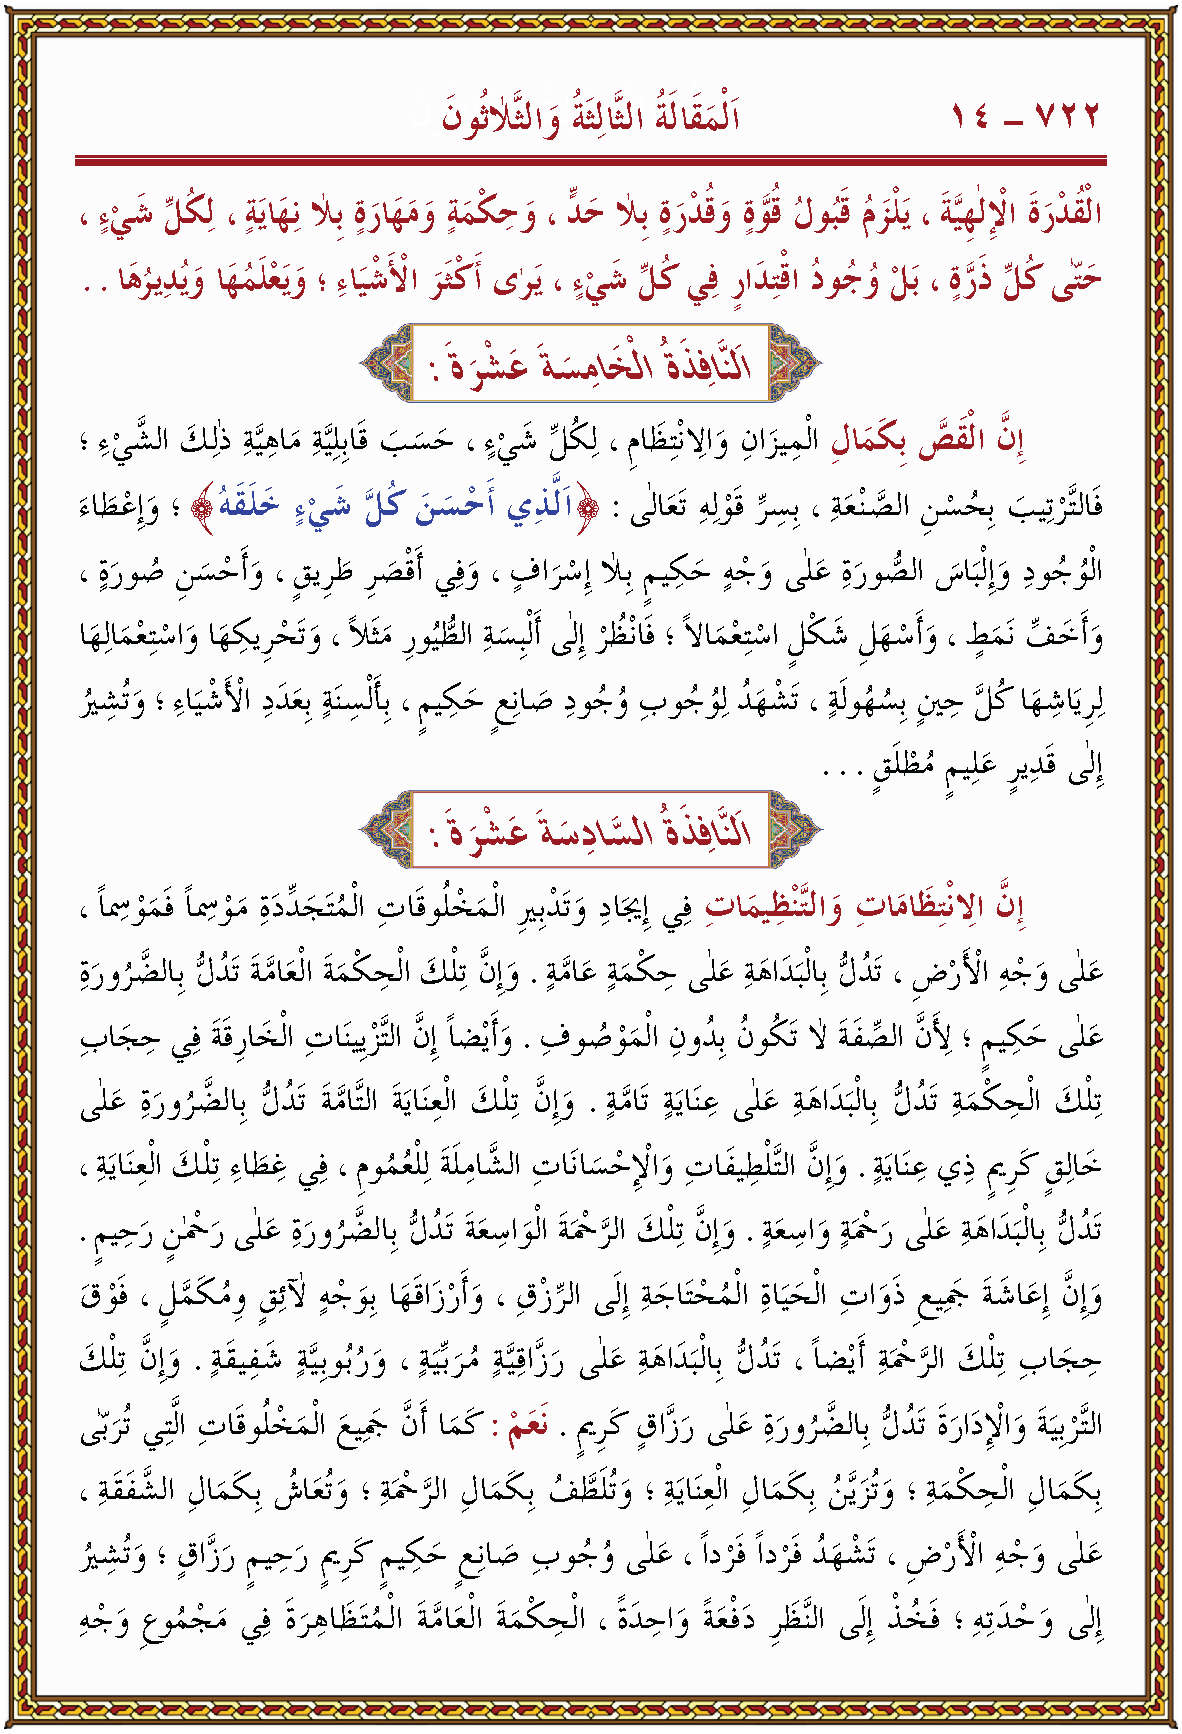 ٧٢٢ – ١٤ اَلْمَقَالَةُ الثَّالِثَةُ وَالثَّلَاثُونَ
الْقُدْرَةَ الْإِلٰهِيَّةَ ، يَلْزَمُ قُبُولُ قُوَّةٍ وَقُدْرَةٍ بِلَا حَدٍّ ، وَحِكْمَةٍ وَمَهَارَةٍ بِلَا نِهَايَةٍ ، لِكُلِّ شَيْءٍ ،
حَتّٰى كُلِّ ذَرَّةٍ ، بَلْ وُجُودُ اقْتِدَارٍ فِي كُلِّ شَيْءٍ ، يَرٰى أَكْثَرَ الْأَشْيَاءِ ؛ وَيَعْلَمُهَا وَيُدِيرُهَا . .
اَلنَّافِذَةُ الْخَامِسَةَ عَشْرَةَ :
إِنَّ الْقَصَّ بِكَمَالِ الْمِيزَانِ وَالِانْتِظَامِ ، لِكُلِّ شَيْءٍ ، حَسَبَ قَابِلِيَّةِ مَاهِيَّةِ ذٰلِكَ الشَّيْءِ ؛
فَالتَّرْتِيبَ بِحُسْنِ الصَّنْعَةِ ، بِسِرِّ قَوْلِهِ تَعَالٰى : ﴿اَلَّذِي أَحْسَنَ كُلَّ شَيْءٍ خَلَقَهُ﴾ ؛ وَإِعْطَاءَ
الْوُجُودِ وَإِلْبَاسَ الصُّورَةِ عَلٰى وَجْهٍ حَكِيمٍ بِلَا إِسْرَافٍ ، وَفِي أَقْصَرِ طَرِيقٍ ، وَأَحْسَنِ صُورَةٍ ،
وَأَخَفِّ نَمَطٍ ، وَأَسْهَلِ شَكْلٍ اسْتِعْمَالًا ؛ فَانْظُرْ إِلٰى أَلْبِسَةِ الطُّيُورِ مَثَلًا ، وَتَحْرِيكِهَا وَاسْتِعْمَالِهَا
لِرِيَاشِهَا كُلَّ حِينٍ بِسُهُولَةٍ ، تَشْهَدُ لِوُجُوبِ وُجُودِ صَانِعٍ حَكِيمٍ ، بِأَلْسِنَةٍ بِعَدَدِ الْأَشْيَاءِ ؛ وَتُشِيرُ
إِلٰى قَدِيرٍ عَلِيمٍ مُطْلَقٍ . . .
اَلنَّافِذَةُ السَّادِسَةَ عَشْرَةَ :
إِنَّ الِانْتِظَامَاتِ وَالتَّنْظِيمَاتِ فِي إِيجَادِ وَتَدْبِيرِ الْمَخْلُوقَاتِ الْمُتَجَدِّدَةِ مَوْسِماً فَمَوْسِماً ،
عَلٰى وَجْهِ الْأَرْضِ ، تَدُلُّ بِالْبَدَاهَةِ عَلٰى حِكْمَةٍ عَامَّةٍ . وَإِنَّ تِلْكَ الْحِكْمَةَ الْعَامَّةَ تَدُلُّ بِالضَّرُورَةِ
عَلٰى حَكِيمٍ ؛ لِأَنَّ الصِّفَةَ لَا تَكُونُ بِدُونِ الْمَوْصُوفِ . وَأَيْضاً إِنَّ التَّزْيِينَاتِ الْخَارِقَةَ فِي حِجَابِ
تِلْكَ الْحِكْمَةِ تَدُلُّ بِالْبَدَاهَةِ عَلٰى عِنَايَةٍ تَامَّةٍ . وَإِنَّ تِلْكَ الْعِنَايَةَ التَّامَّةَ تَدُلُّ بِالضَّرُورَةِ عَلٰى
خَالِقٍ كَرِيمٍ ذِي عِنَايَةٍ . وَإِنَّ التَّلْطِيفَاتِ وَالْإِحْسَانَاتِ الشَّامِلَةَ لِلْعُمُومِ ، فِي غِطَاءِ تِلْكَ الْعِنَايَةِ ،
تَدُلُّ بِالْبَدَاهَةِ عَلٰى رَحْمَةٍ وَاسِعَةٍ . وَإِنَّ تِلْكَ الرَّحْمَةَ الْوَاسِعَةَ تَدُلُّ بِالضَّرُورَةِ عَلٰى رَحْمٰنٍ رَحِيمٍ .
وَإِنَّ إِعَاشَةَ جَمِيعِ ذَوَاتِ الْحَيَاةِ الْمُحْتَاجَةِ إِلَى الرِّزْقِ ، وَأَرْزَاقَهَا بِوَجْهٍ لَآئِقٍ وِمُكَمَّلٍ ، فَوْقَ
حِجَابِ تِلْكَ الرَّحْمَةِ أَيْضاً ، تَدُلُّ بِالْبَدَاهَةِ عَلٰى رَزَّاقِيَّةٍ مُرَبِّيَةٍ ، وَرُبُوبِيَّةٍ شَفِيقَةٍ . وَإِنَّ تِلْكَ
التَّرْبِيَةَ وَالْإِدَارَةَ تَدُلُّ بِالضَّرُورَةِ عَلٰى رَزَّاقٍ كَرِيمٍ . نَعَمْ : كَمَا أَنَّ جَمِيعَ الْمَخْلُوقَاتِ الَّتِي تُرَبّٰى
بِكَمَالِ الْحِكْمَةِ ؛ وَتُزَيَّنُ بِكَمَالِ الْعِنَايَةِ ؛ وَتُلَطَّفُ بِكَمَالِ الرَّحْمَةِ ؛ وَتُعَاشُ بِكَمَالِ الشَّفَقَةِ ،
عَلٰى وَجْهِ الْأَرْضِ ، تَشْهَدُ فَرْداً فَرْداً ، عَلٰى وُجُوبِ صَانِعٍ حَكِيمٍ كَرِيمٍ رَحِيمٍ رَزَّاقٍ ؛ وَتُشِيرُ
إِلٰى وَحْدَتِهِ ؛ فَخُذْ إِلَى النَّظَرِ دَفْعَةً وَاحِدَةً ، الْحِكْمَةَ الْعَامَّةَ الْمُتَظَاهِرَةَ فِي مَجْمُوعِ وَجْهِ